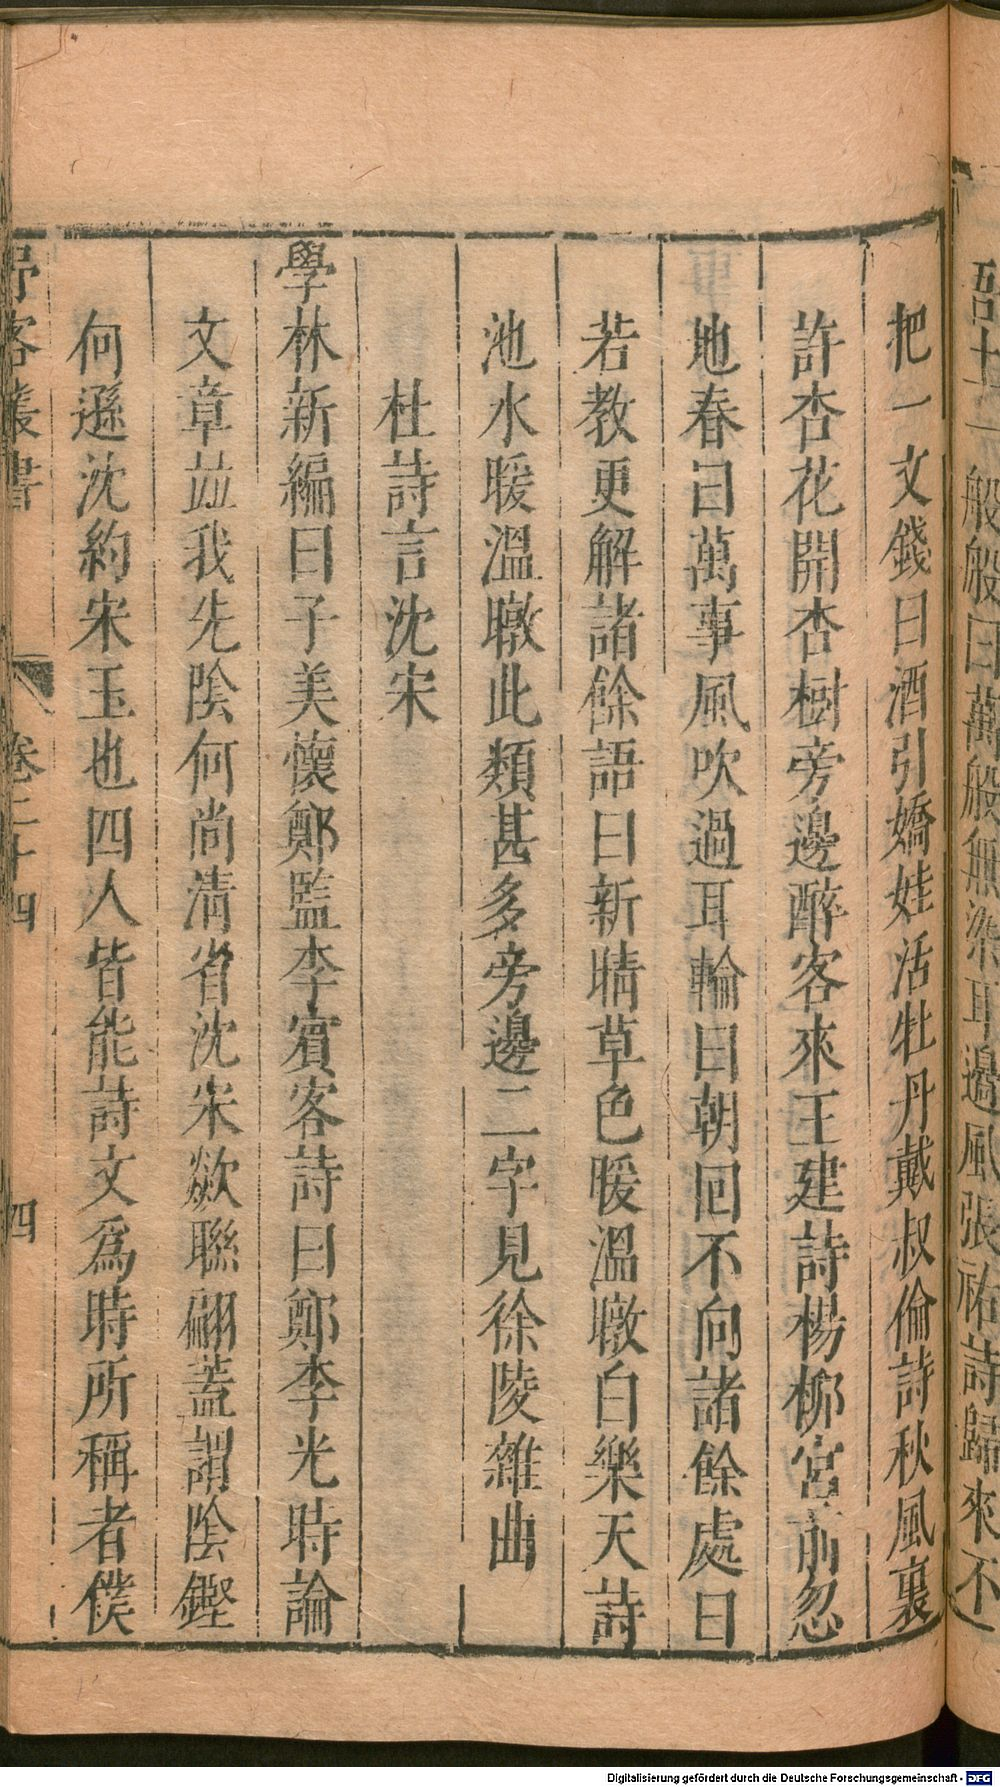 般般曰萬般無染耳邊風張祐詩歸來不
把一文錢曰酒引嬌娃活牡丹戴叔倫詩秋風裏
許杏花開杏樹旁邊醉客來王建詩楊柳宮前忽
地春曰萬事風吹過耳輪曰朝回不向諸餘處曰
若教更解諸餘語曰新晴草色暖溫暾白樂天詩
池水暖溫暾此類甚多旁邊二字見徐陵雜曲
杜詩言沈宋
學林新編曰子美懷鄭監李賓客詩曰鄭李光時論
文章並我先陰何尚清省沈宋歘聯翩蓋謂陰鏗
何遜沈約宋玉也四人皆能詩文爲時所稱者僕
野客叢書 卷二十四 四
Digitalisierung gefördert durch die Deutsche Forschungsgemeinschaft - DFG